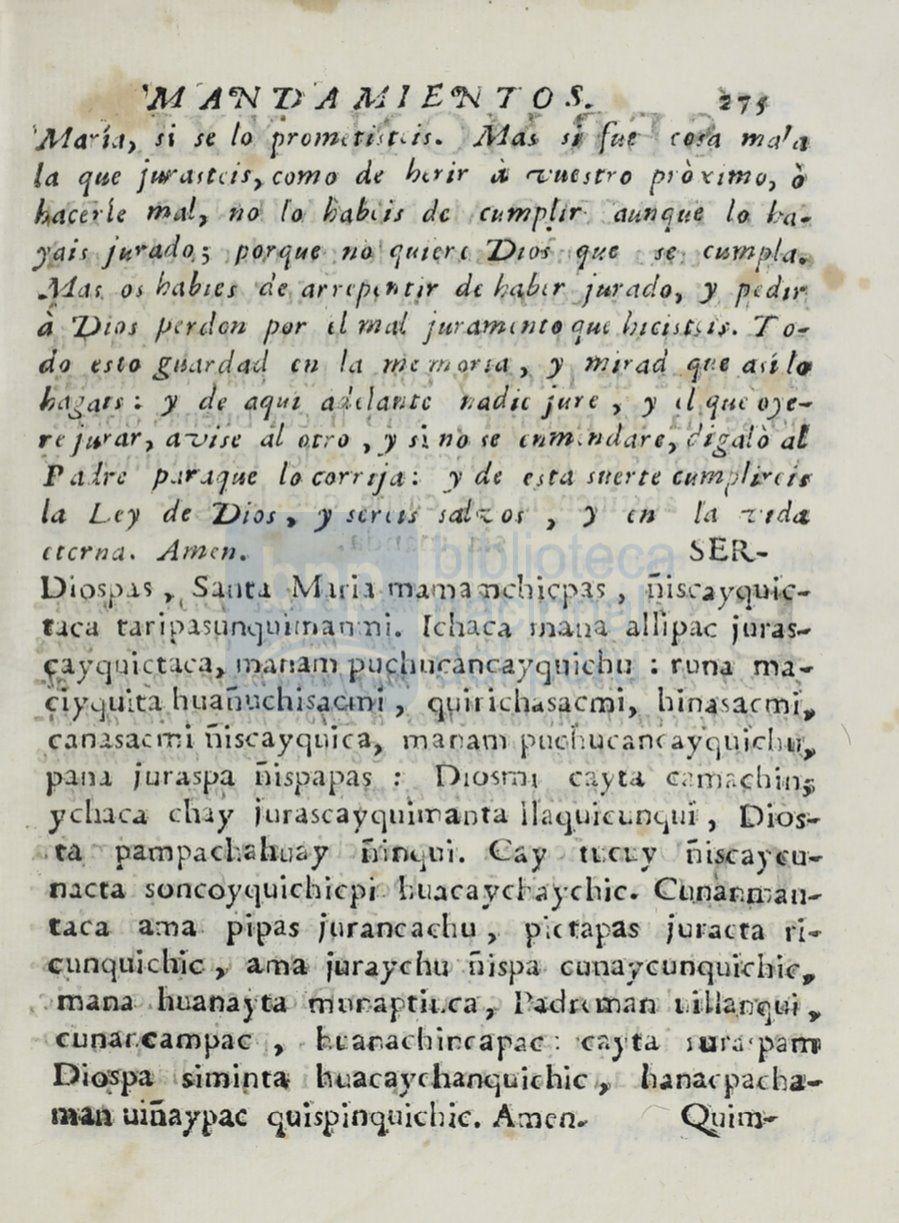 MANDAMIENTOS. 275
Maria, si se lo prometisteis. Mas si fue cosa mala
la que jurasteis, como de herir à vuestro pròximo, ò
hacerle mal, no lo habeis de cumplir aunque lo ha-
yais jurado; porque no quiere Dios que se cumpla.
Mas os habies de arrepentir de haber jurado, y pedir
à Dios perdon por el mal juramento que hicisteis. To-
do esto guardad en la memoria, y mirad que asi lo
hagais: y de aqui adelante nadie jure, y el que oye-
re jurar, avise al otro, y si no se enmendare, digalò al
Padre paraque lo corrija: y de esta suerte cumplireis
la Ley de Dios, y sereis salvos, y en la vida
eterna. Amen. SER-
Diospas, Santa Maria mamanchicpas, ñiscayquic-
taca taripasunquimanmi. Ichaca mana allipac juras-
çayquictaca, manam puchucancayquichu: runa ma-
çiyquita huañuchisacmi, quirichasacmi, hinasacmi,
canasacmi ñiscayquica, manam puchucancayquichu,
pana juraspa ñispapas: Diosmi cayta camachin;
ychaca chay jurascayquimanta llaquicunqui, Dios-
ta pampachahuay ñinqui. Cay tucuy ñiscaycu-
nacta soncoyquichicpi huacaychaychic. Cunanman-
taca ama pipas jurancachu, pictapas juracta ri-
cunquichic, ama juraychu ñispa cunaycunquichic,
mana huanayta munaptinca, Padreman uillanqui,
cunancampac, huanachincapac: cayta ruraspam
Diospa siminta huacaychanquichic, hanacpacha-
man uiñaypac quispinquichic. Amen. Quim-
bnp biblioteca nacional del